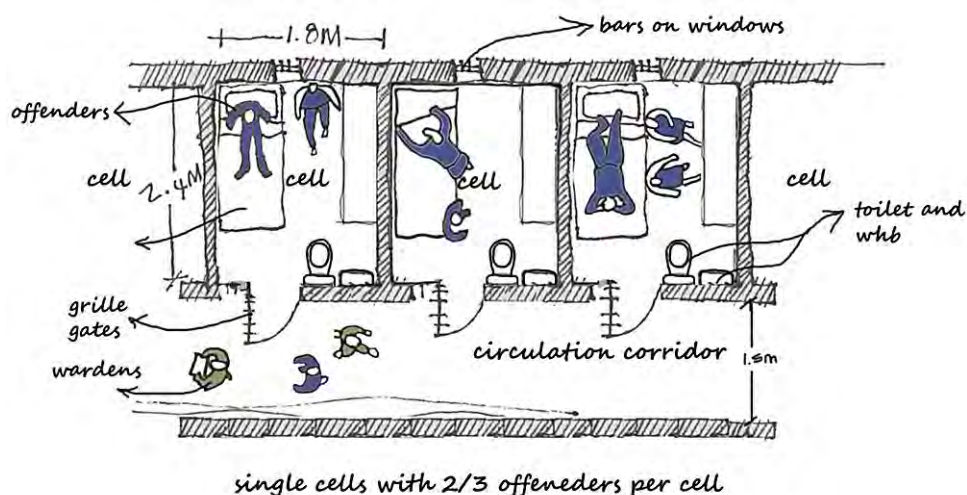 1.8M
bars on windows
offenders
cell
2.4M
cell
cell
cell
toilet and
whb
grille
gates
circulation corridor
1.5m
wardens
single cells with 2/3 offeneders per cell